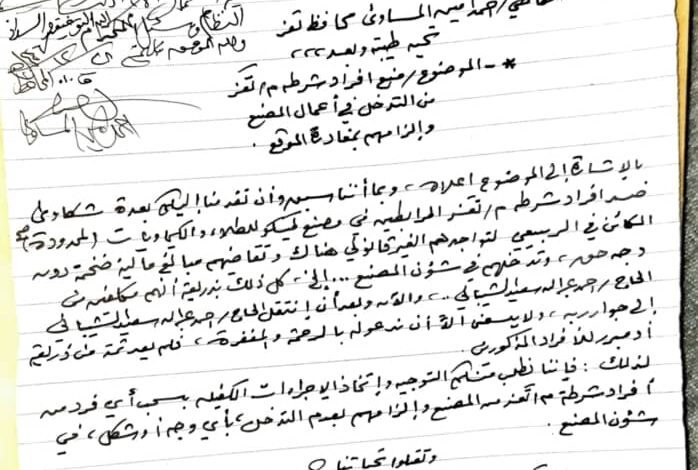 القاضي/ أحمد أمين المساوى محافظ تعز
تحية طيبة وبعد،،،
*- الموضوع/ منع افراد شرطة م/تعز
من التدخل في أعمال المصنع
وإلزامهم بمغادرة الموقع.
بالإشارة إلى الموضوع أعلاه، وبما أننا سبق وأن تقدمنا إليكم بعدة شكاوى
ضد افراد شرطة م/تعز المرابطين في مصنع للطلاء والكيماويات (المحدودة)
الكائن في الربيعي لتواجدهم الغير قانوني هناك وتقاضيهم مبالغ مالية ضخمة دون
وجه حق، وتدخلهم في شؤون المصنع ... إلخ، كل ذلك بذريعة أنهم مكلفين من
الحاج/ أحمد عبدالله سعيد الشيباني..، والآن وبعد أن إنتقل الحاج/ أحمد عبدالله سعيد الشيباني
إلى جوار ربه، ولا يسعني الآ أن ندعو له بالرحمة والمغفرة، فلم يعد ثمة من ذريعة
أو مبرر للأفراد المذكورين.
لذلك: فإننا نطلب منكم التوجيه وإتخاذ الإجراءات الكفيله بسحب أي فرد من
أفراد شرطة م/تعز من المصنع وإلزامهم بعدم التدخل بأي وجه أو شكل في
شؤون المصنع.
وتقبلوا تحياتنا